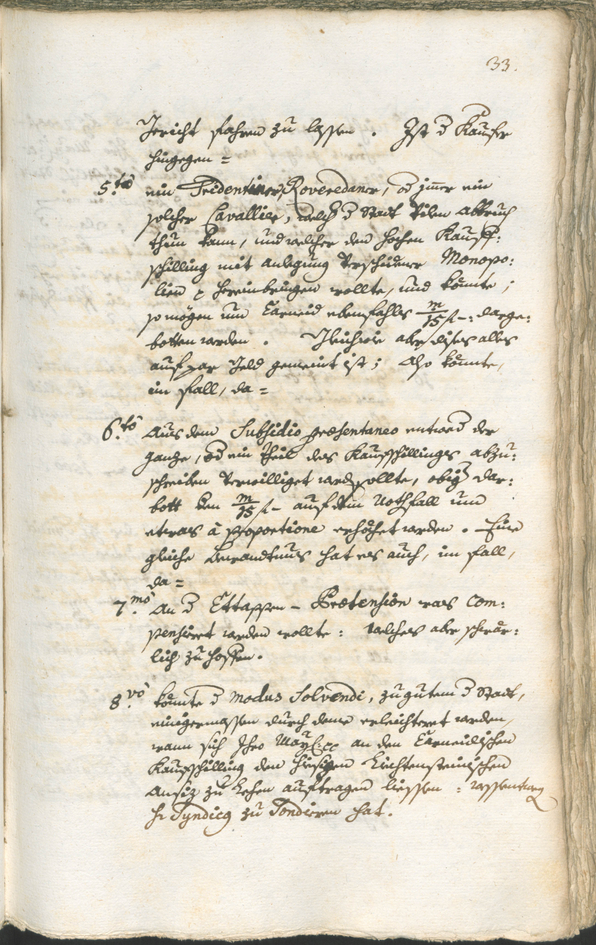 33.
Gericht fahren zu lassen. Ist d Kaufer
hingegen =
5.to ein Tridentiner, Roveredaner, od immer ein
solcher Cavallier, welch d Stadt Abbruch
thun kann, und welcher den hohen Kauf-
schilling mit Anlegung verschidener Monopo:
lien hereinbringen wollte, und könnte;
so mögen um Carneid ebenfahls m/15 f - darge:
botten werden. Gleichwie aber dises alles
auf par Geld gemeint ist; Also könnte,
im fall, da =
6.to Aus dem Subsidio præsentaneo entwed der
ganze, od ein Theil des Kaufschillinges abzu:
schreiben verwilliget werd sollte, obig Dar:
bott den m/15 f - auf dem Nothfall um
etwas à proportione erhöhet werden. Eine
gleiche Bewandtnus hat es auch, im fall,
da =
7.mo An d Ettappen - Prætension was Com:
pensiret werden wollte: welches aber schwär:
lich zu hoffen.
8.vo könnte d modus Solvendi, zu gutem d Stadt,
einigermassen durch deme erleichteret werden,
wann sich Ihro May: an den Carneidischen
Kaufschilling den hiesigen Lichtensteinischen
Ansiz zu Lehen auftragen liessen:
hr Syndicg zu Sondiren hat.